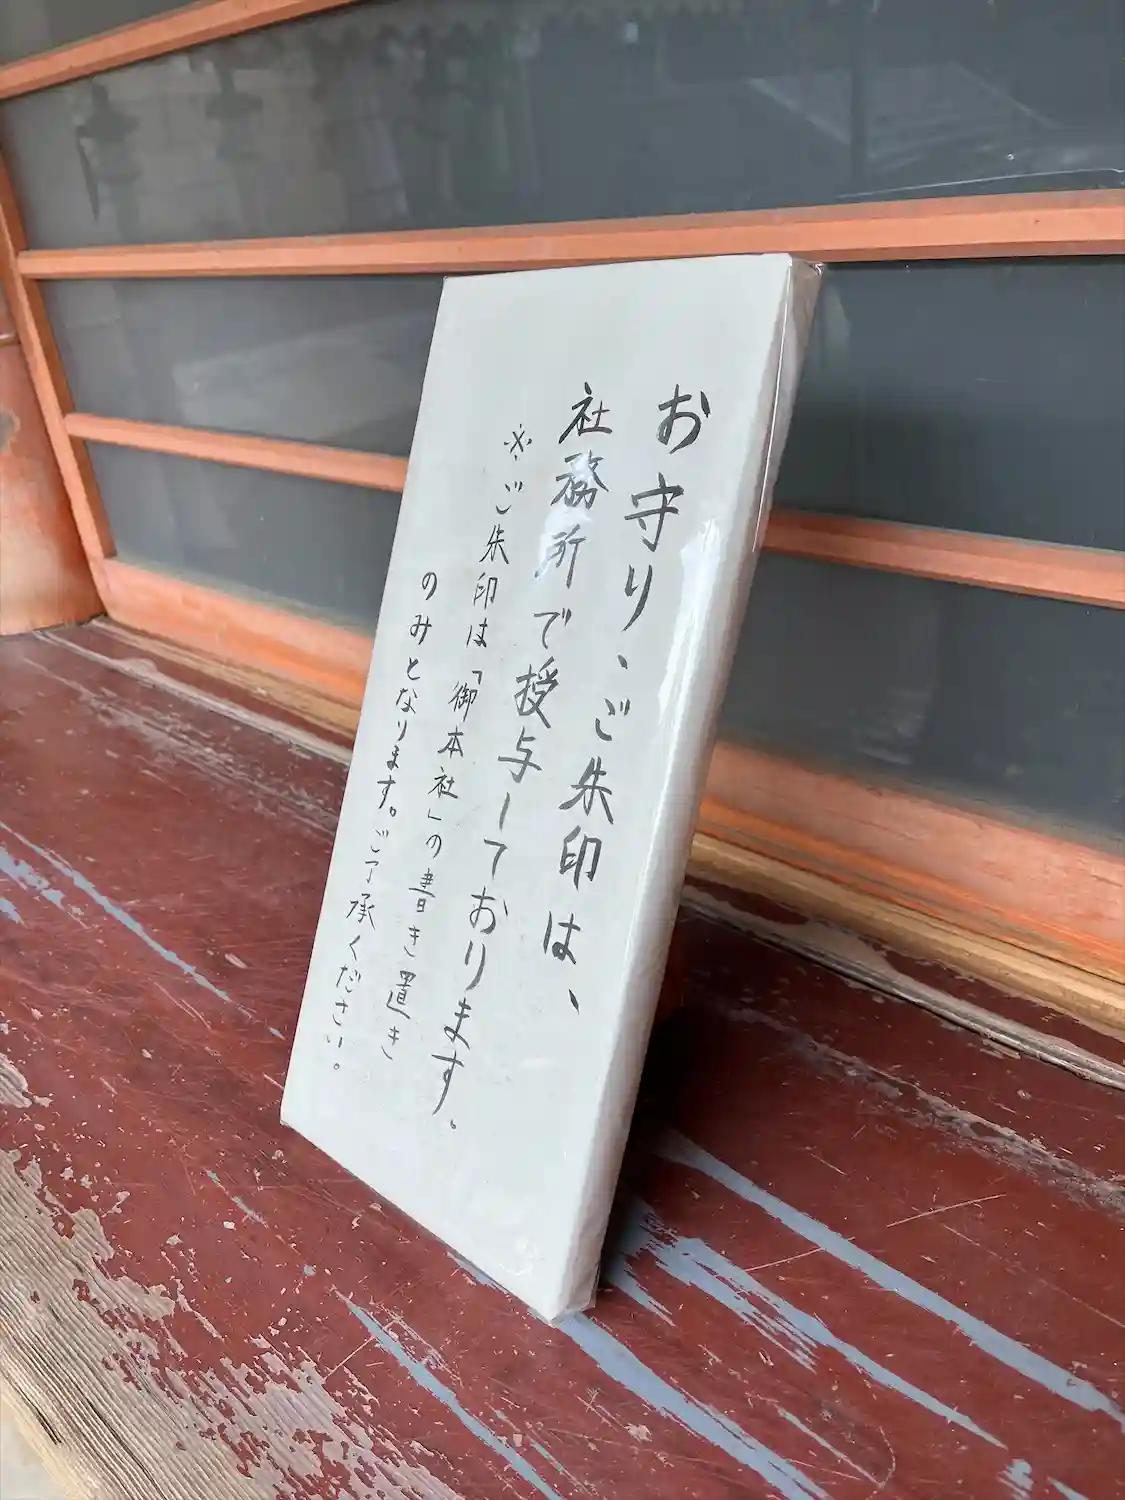 お守り、ご朱印は、
社務所で授与しております。
※ご朱印は「御本社」の書き置き
のみとなります。ご了承ください。